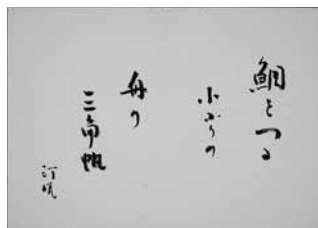 鯛をつる
小ぶりの
舟の
三角帆